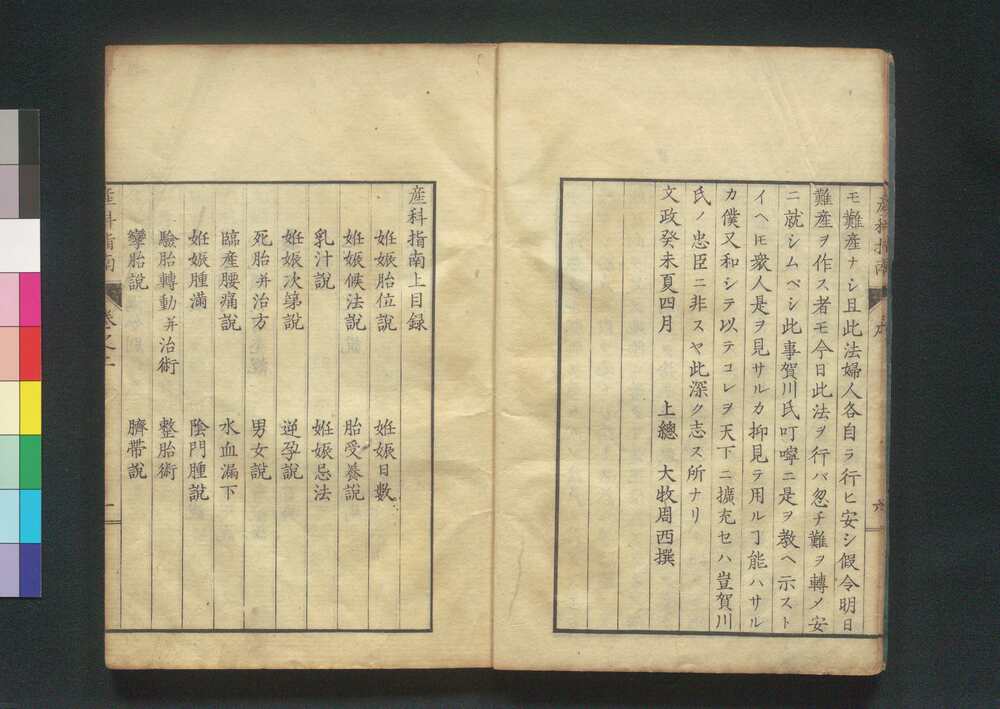 モ難産ナシ且此法婦人各自ラ行ヒ安シ假令明日
難産ヲ作ス者モ今日此法ヲ行バ忽チ難ヲ轉メ安
ニ就シムベシ此事賀川氏叮嚀ニ是ヲ教ヘ示スト
イヘ𪜈衆人是ヲ見サルカ抑見テ用ル丁能ハサル
カ僕又和シテ以テコレヲ天下ニ擴充セハ豈賀川
氏ノ忠臣ニ非スヤ此深ク志ス所ナリ
文政癸未夏四月 上總 大牧周西撰
産科指南上目録
姙娠胎位說 姙娠日數
姙娠候法說 胎受養說
乳汁說 姙娠忌法
姙娠次第說 逆孕說
死胎并治方 男女說
臨産腰痛說 水血漏下
姙娠腫滿 陰門腫說
驗胎轉動并治術 整胎術
孿胎說 臍帶說
産科指南 卷之上 一